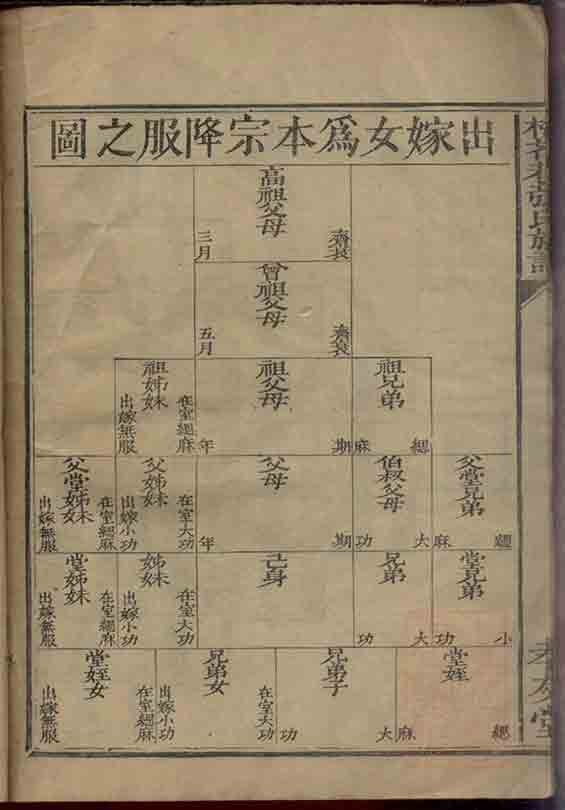 張氏族譜
孝友堂
出嫁女爲本宗降服之圖
高祖父母
齊衰
三月
曾祖父母
齊衰
五月
祖兄弟
緦麻
祖父母
期年
祖姊妹
在室緦麻
出嫁無服
父堂兄弟
緦麻
伯叔父母
大功
父母
期年
父姊妹
在室大功
出嫁小功
父堂姊妹
在室緦麻
出嫁無服
堂兄弟
小功
兄弟
大功
己身
姊妹
在室大功
出嫁小功
堂姊妹
在室緦麻
出嫁無服
堂姪
緦麻
兄弟子
大功
兄弟女
在室大功
出嫁小功
堂姪女
在室緦麻
出嫁無服